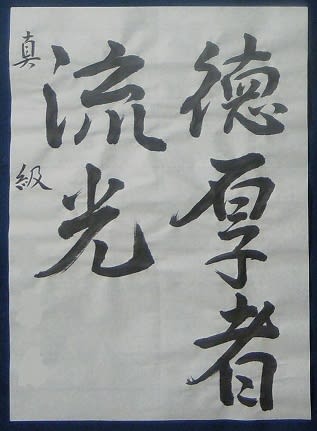 德厚者
流光
真 級